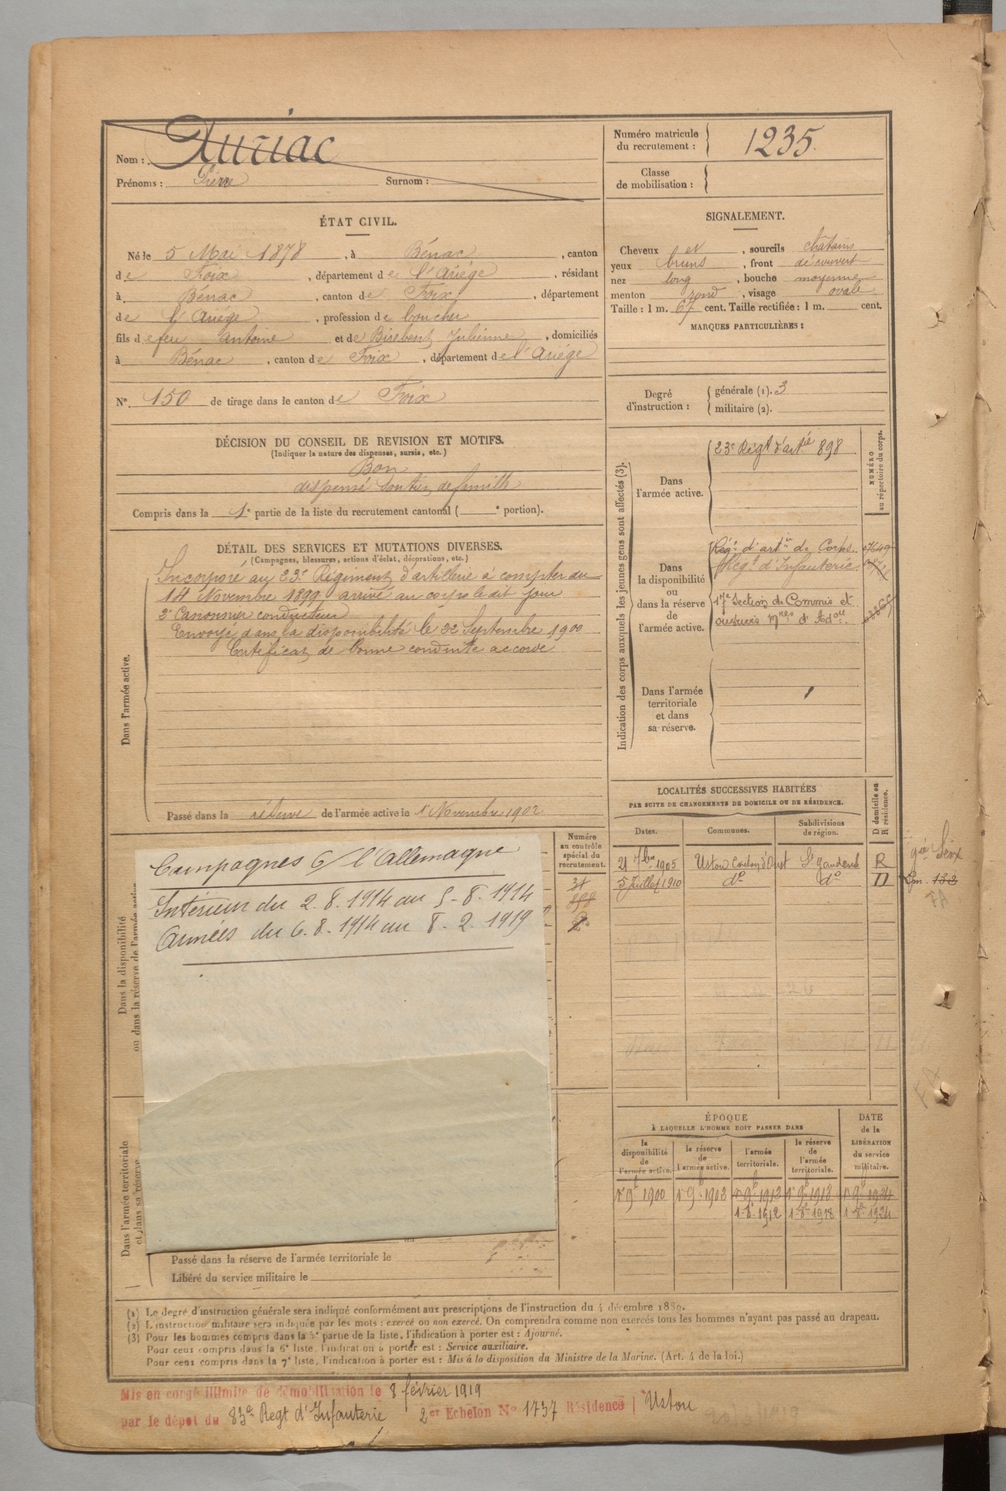 Nom : Auriac
Prénoms : Pierre Surnom :
Numéro matricule du recrutement : 1235.
Classe de mobilisation :
ÉTAT CIVIL.
Né le 5 Mai 1878, à Bénac, canton
de Foix, département de l'Ariège, résidant
à Bénac, canton de Foix, département
de l'Ariège, profession de boucher
fils de feu Antoine et de Birebent Julienne, domiciliés
à Bénac, canton de Foix, département de l'Ariège
N° 150 de tirage dans le canton de Foix
SIGNALEMENT.
Cheveux et, sourcils châtains
yeux bruns, front découvert
nez long, bouche moyenne
menton rond, visage ovale
Taille : 1 m. 67 cent. Taille rectifiée : 1 m. cent.
MARQUES PARTICULIÈRES :
Degré d'instruction : générale (1). 3
militaire (2).
DÉCISION DU CONSEIL DE REVISION ET MOTIFS.
(Indiquer la nature des dispenses, sursis, etc.)
Bon
dispensé soutien de famille
Compris dans la 1e partie de la liste du recrutement cantonal ( e portion).
DÉTAIL DES SERVICES ET MUTATIONS DIVERSES.
(Campagnes, blessures, actions d'éclat, décorations, etc.)
Dans l'armée active.
Incorporé au 23e Régiment d'artillerie à compter du
14 Novembre 1899 arrivé au corps le dit jour
2e Canonnier conducteur
Envoyé dans la disponibilité le 22 Septembre 1900
Certificat de bonne conduite accordé
Passé dans la réserve de l'armée active le 1 Novembre 1902
Indication des corps auxquels les jeunes gens sont affectés (3).
NUMÉRO au répertoire du corps.
Dans l'armée active.
23e Régt d'artie 898
Dans la disponibilité ou dans la réserve de l'armée active.
Régt d'artie de Corps
Régt d'Infanterie
17e Section de Commis et
ouvriers mres d'Adon
Dans l'armée territoriale et dans sa réserve.
LOCALITÉS SUCCESSIVES HABITÉES
PAR SUITE DE CHANGEMENTS DE DOMICILE OU DE RÉSIDENCE.
Dates. Communes. Subdivisions de région. D domicile ou R résidence.
21 1905 Ustou Canton d'Oust St Gaudens R
5 Juillet 1910 do do D
Dans la disponibilité ou dans la réserve de l'armée active
Numéro au contrôle spécial du recrutement.
Campagnes C / l'Allemagne
Intérieur du 2.8.1914 au 5-8.1914
Armées du 6.8.1914 au 8.2.1919
Dans l'armée territoriale et dans sa réserve
Passé dans la réserve de l'armée territoriale le
Libéré du service militaire le
ÉPOQUE
À LAQUELLE L'HOMME DOIT PASSER DANS
la disponibilité de l'armée active. la réserve de l'armée active. l'armée territoriale. la réserve de l'armée territoriale.
DATE de la LIBÉRATION du service militaire.
1r 9b 1900 1r 9b 1903 1r 9b 1913 1r 9b 1919 1r 9b 1924
1 8b 1912 1 8b 1918 1 8b 1924
(1) Le degré d'instruction générale sera indiqué conformément aux prescriptions de l'instruction du 4 décembre 1889.
(2) L'instruction militaire sera indiquée par les mots : exercé ou non exercé. On comprendra comme non exercés tous les hommes n'ayant pas passé au drapeau.
(3) Pour les hommes compris dans la 5e partie de la liste, l'indication à porter est : Ajourné.
Pour ceux compris dans la 6e liste, l'indication à porter est : Service auxiliaire.
Pour ceux compris dans la 7e liste, l'indication à porter est : Mis à la disposition du Ministre de la Marine. (Art. 4 de la loi.)
Mis en congé illimité de démobilisation le 8 février 1919
par le dépôt du 83e Regt d'Infanterie 2er Echelon N° 1737 Résidence Ustou